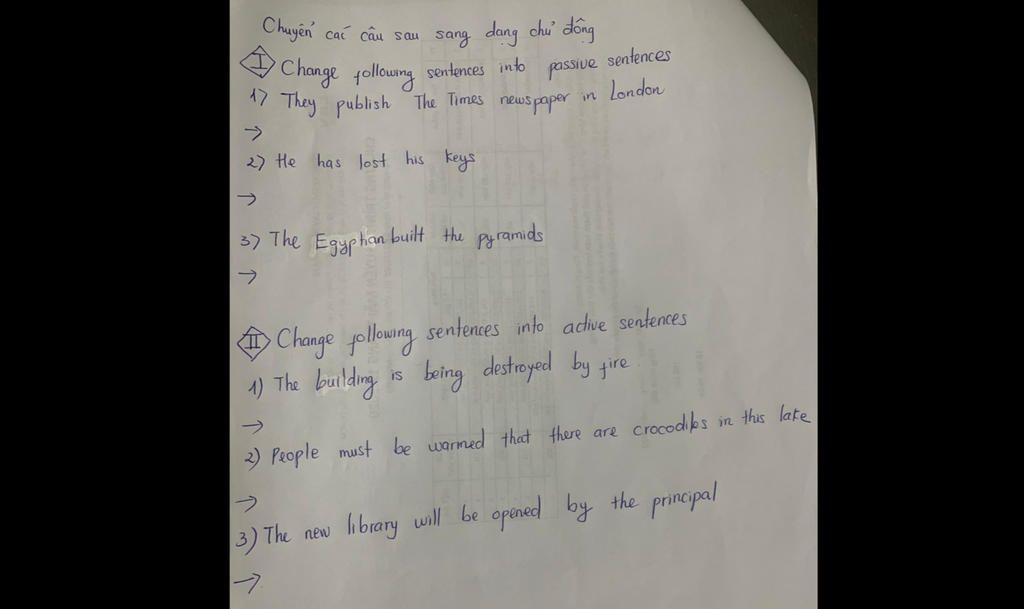 Chuyển các câu sau sang dạng chủ động
I Change following sentences into passive sentences
1) They publish The Times newspaper in London
→
2) He has lost his keys
→
3) The Egyphan built the pyramids
→
II Change following sentences into active sentences
1) The building is being destroyed by fire
→
2) People must be warmed that there are crocodiles in this lake
→
3) The new library will be opened by the principal
→